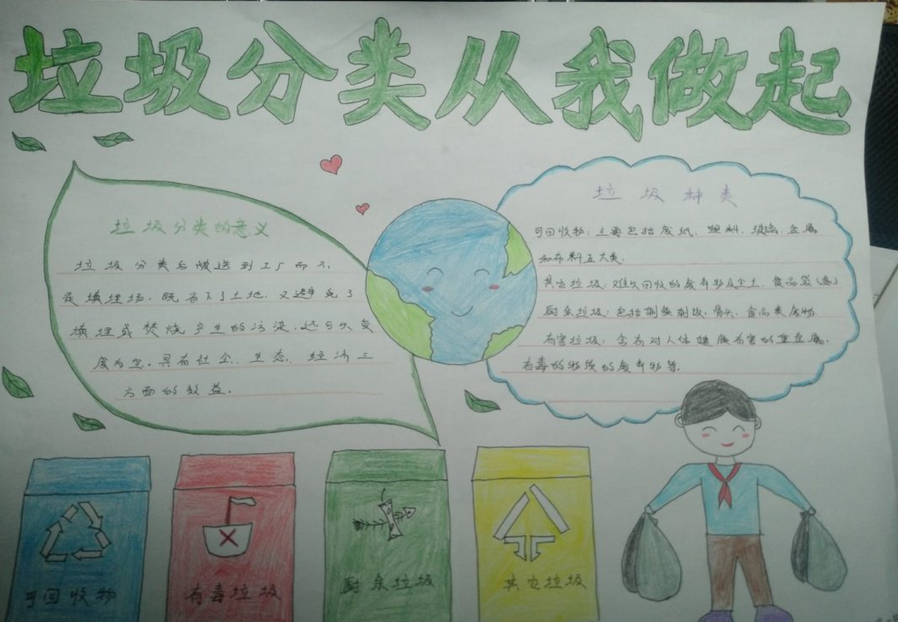 垃圾分类从我做起
垃圾分类的意义
垃圾分类后被送到工厂而不
是填埋场，既省下了土地，又避免了
填埋或焚烧产生的污染，还可以变
废为宝。具有社会、生态、经济三
方面的效益。
垃圾种类
可回收物：主要包括废纸、塑料、玻璃、金属
和布料五大类。
其它垃圾：难以回收的废弃物及尘土、食品袋
厨余垃圾：包括剩菜剩饭、骨头、食品类废物
有害垃圾：含有对人体健康有害的重金属、
有毒的物质的废弃物等。
可回收物
有毒垃圾
厨余垃圾
其它垃圾